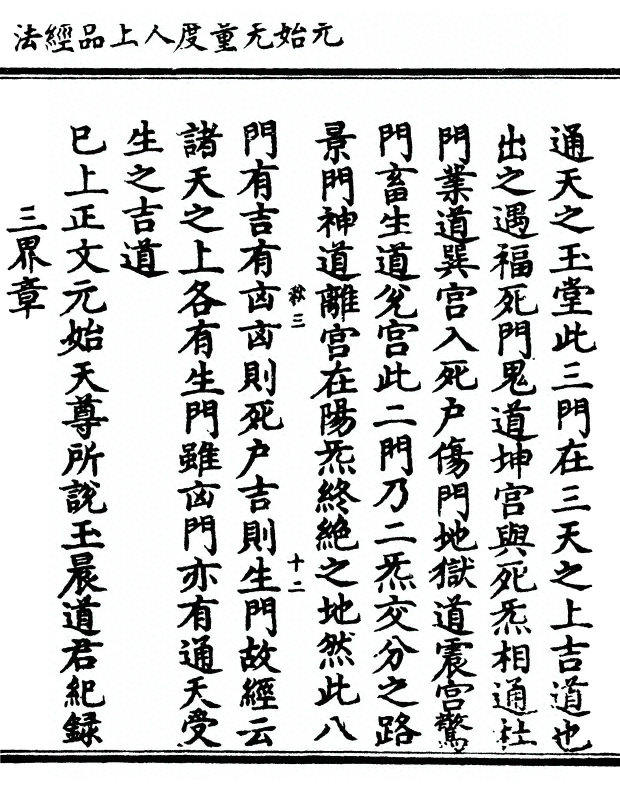 元始无量度人上品經法
通天之玉堂此三門在三天之上吉道也
出之遇福死門鬼道坤宮與死炁相通杜
門業道巽宮入死户傷門地獄道震宮驚
門畜生道兊宮此二門乃二炁交分之路
景門神道離宮在陽炁終絶之地然此八
敉三
十二
門有吉有㐫㐫則死户吉則生門故經云
諸天之上各有生門雖㐫門亦有通天受
生之吉道
已上正文元始天尊所說玉晨道君紀錄
三界章